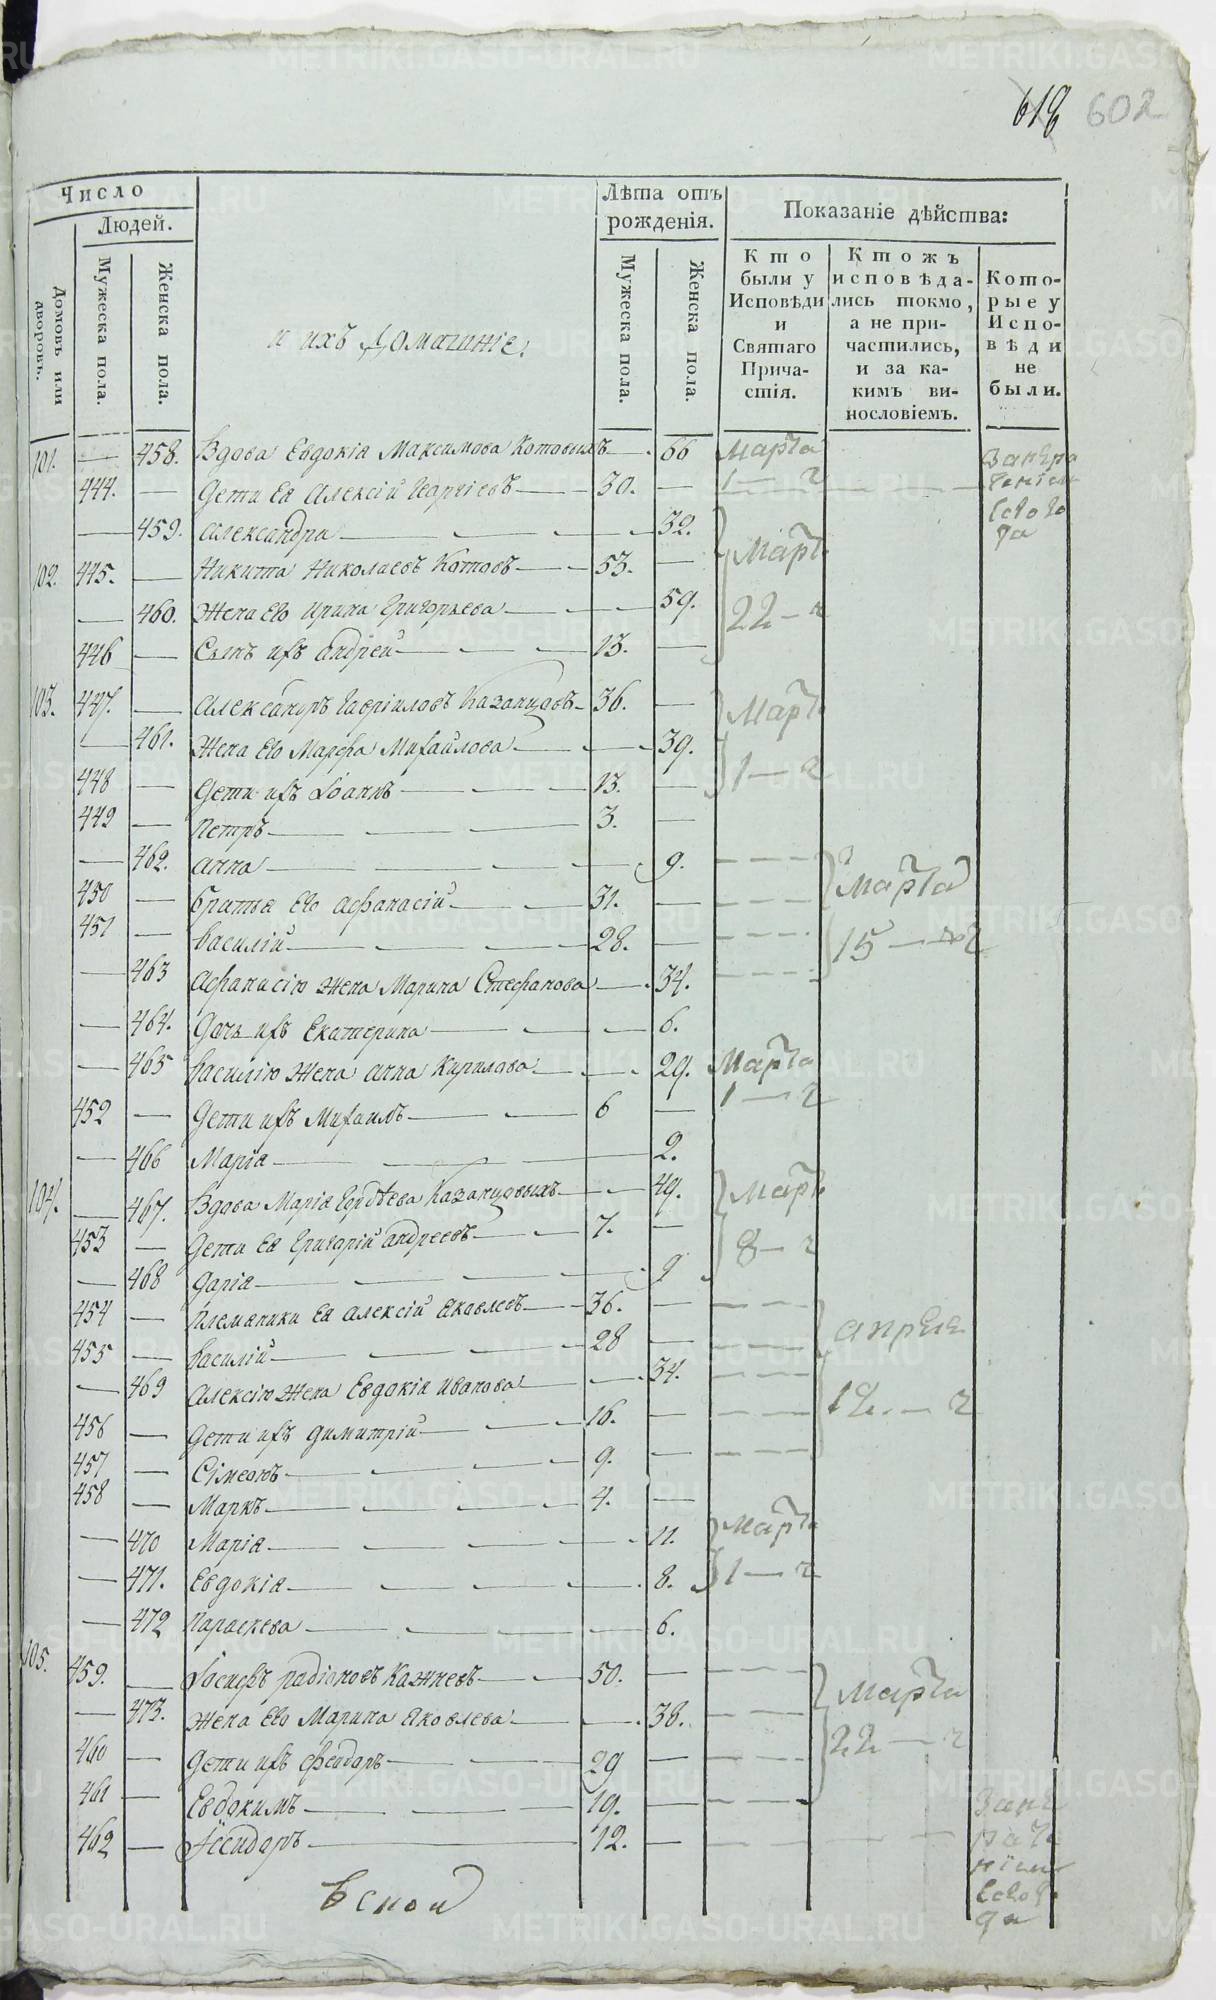 618 602
Число
Людей.
Домовъ или дворовъ.
Мужеска пола.
Женска пола.
и ихъ Домашніе.
Лѣта отъ рожденія.
Мужеска пола.
Женска пола.
Показаніе дѣйства:
Кто были у Исповѣди и Святаго Причастія.
Ктожъ исповѣдались токмо, а не причастились, и за какимъ винословіемъ.
Которые у Исповѣди не были.
101. — 458. Вдова Евдокія Максимова Котовыхъ — 66 Марта
444. — Дети Ея Алексій Георгіевъ — 30. — 1 — ч
— 459. Александра — 32.
102. 445. — Никита Николаевъ Котовъ — 53. — Марта
— 460. Жена Его Ирина Григорьева — 59. 22 — ч
446 — Сынъ ихъ Андрей — 13. —
103. 447. — Александръ Гавріиловъ Казанцовъ — 36. — Марта
— 461. Жена Его Марфа Михайлова — 39.
448 — Дети ихъ Іоаннъ — 13. — 1 — ч
449 — Петръ — 3. —
— 462. Анна — 9.
450 — Братья Его Афанасій — 31. — Марта
451 — Василій — 28. — 15 — ч
— 463 Афанасію Жена Марина Стефанова — 34.
— 464. Дочь ихъ Екатерина — 6.
— 465 Василію Жена Анна Кирилова — 29. Марта
452 — Дети ихъ Михаилъ — 6 — 1 — ч
— 466 Марія — 2.
104. — 467. Вдова Марія Гордѣева Казанцовыхъ — 49. Марта
453 — Дети Ея Григорій Андреевъ — 7. — 8 — ч
— 468 Дарія — 9
454 — Племяники Ея Алексій Яковлевъ — 36. — Апреля
455 — Василій — 28 —
— 469 Алексію Жена Евдокія Иванова — 34. 12. — ч
456 — Дети ихъ Димитрій — 16. —
457 — Сімеонъ — 9. —
458 — Маркъ — 4. —
— 470 Марія — 11. Марта
— 471. Евдокія — 8. 1 — ч
— 472 Параскева — 6.
105. 459. — Іосифъ Радіоновъ Кажневъ — 50. — Марта
— 473. Жена Его Марина Яковлева — 38. 22 — ч
460 — Дети ихъ Феодоръ — 29 —
461 — Евдокимъ — 19. —
462 — Ісидоръ — 12. —